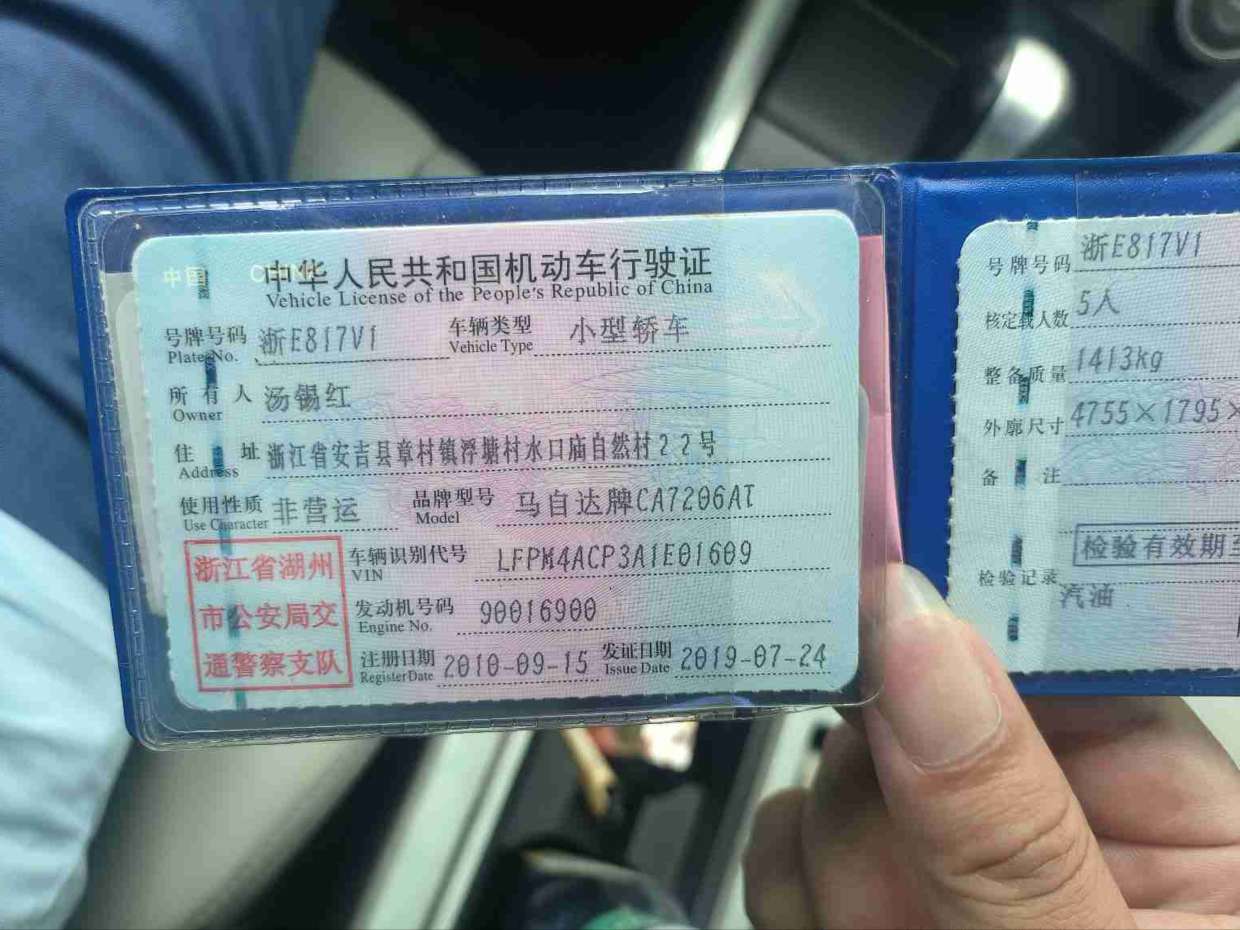 中华人民共和国机动车行驶证
Vehicle License of the People's Republic of China
号牌号码 浙E817V1 车辆类型 小型轿车
Plate No. Vehicle Type
所有人 汤锡红
Owner
住址 浙江省安吉县章村镇浮塘村水口庙自然村22号
Address
使用性质 非营运 品牌型号 马自达牌CA7206AT
Use Character Model
浙江省湖州
市公安局交
通警察支队
车辆识别代号 LFPM4ACP3A1E01609
VIN
发动机号码 90016900
Engine No.
注册日期 2010-09-15 发证日期 2019-07-24
Register Date Issue Date
号牌号码 浙E817V1
核定载人数 5人
整备质量 1413kg
外廓尺寸 4755×1795×
备注
检验有效期至
检验记录
汽油